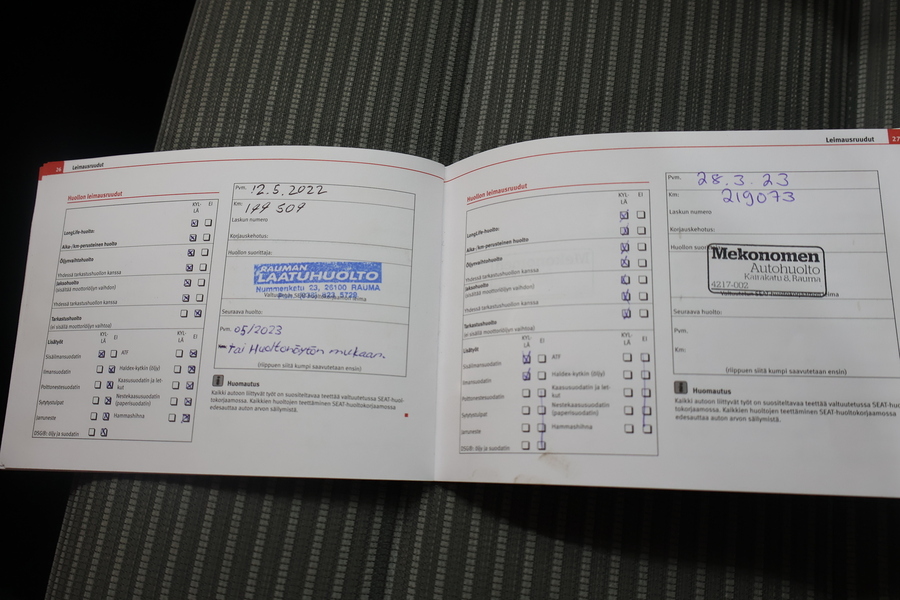 26 Leimausruudut
Huollon leimausruudut
KYL- EI
LÄ
LongLife-huolto
Aika-/km-perusteinen huolto
Öljynvaihtohuolto
Yhdessä tarkastushuollon kanssa
Jaksohuolto
(sisältää moottoriöljyn vaihdon)
Yhdessä tarkastushuollon kanssa
Tarkastushuolto
(ei sisällä moottoriöljyn vaihtoa)
Lisätyöt
KYL- EI
LÄ
KYL- EI
LÄ
Sisäilmansuodatin
Ilmansuodatin
Polttonestesuodatin
Sytytystulpat
Jarruneste
DSG®: öljy ja suodatin
ATF
Haldex-kytkin (öljy)
Kaasusuodatin ja let-
kut
Nestekaasusuodatin
(paperisuodatin)
Hammashihna
Pvm. 12.5.2022
Km: 199 509
Laskun numero
Korjauskehotus:
Huollon suorittaja:
RAUMAN
LAATUHUOLTO
Nummenkatu 23, 26100 RAUMA
Seuraava huolto:
Pvm. 05/2023
tai Huoltonäytön mukaan.
(riippuen siitä kumpi saavutetaan ensin)
Huomautus
Kaikki autoon liittyvät työt on suositeltavaa teettää valtuutetussa SEAT-huol-
tokorjaamossa. Kaikkien huoltojen teettäminen SEAT-huoltokorjaamossa
edesauttaa auton arvon säilymistä.
Leimausruudut 27
Huollon leimausruudut
KYL- EI
LÄ
LongLife-huolto:
Aika-/km-perusteinen huolto
Öljynvaihtohuolto
Yhdessä tarkastushuollon kanssa
Jaksohuolto
(sisältää moottoriöljyn vaihdon)
Yhdessä tarkastushuollon kanssa
Tarkastushuolto
(ei sisällä moottoriöljyn vaihtoa)
Lisätyöt
KYL- EI
LÄ
KYL- EI
LÄ
Sisäilmansuodatin
Ilmansuodatin
Polttonestesuodatin
Sytytystulpat
Jarruneste
DSG®: öljy ja suodatin
ATF
Haldex-kytkin (öljy)
Kaasusuodatin ja let-
kut
Nestekaasusuodatin
(paperisuodatin)
Hammashihna
Pvm. 28.3.23
Km: 219073
Laskun numero
Korjauskehotus:
Huollon
Mekonomen
Autohuolto
Kairakatu 8, Rauma
4217-002
Seuraava huolto:
Pvm.
Km:
(riippuen siitä kumpi saavutetaan ensin)
Huomautus
Kaikki autoon liittyvät työt on suositeltavaa teettää valtuutetussa SEAT-
tokorjaamossa. Kaikkien huoltojen teettäminen SEAT-huoltokorjaamossa
edesauttaa auton arvon säilymistä.